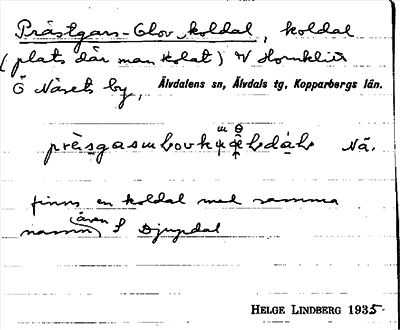 Prästgars-Clov koldal, koldal
(plats där man kolat) V Hornkliti
Ö Näsets by, Älvdalens sn, Älvdals tg, Kopparbergs län.
Nä.
finns en koldal med samma
namn även S Djupdal
HELGE LINDBERG 1935